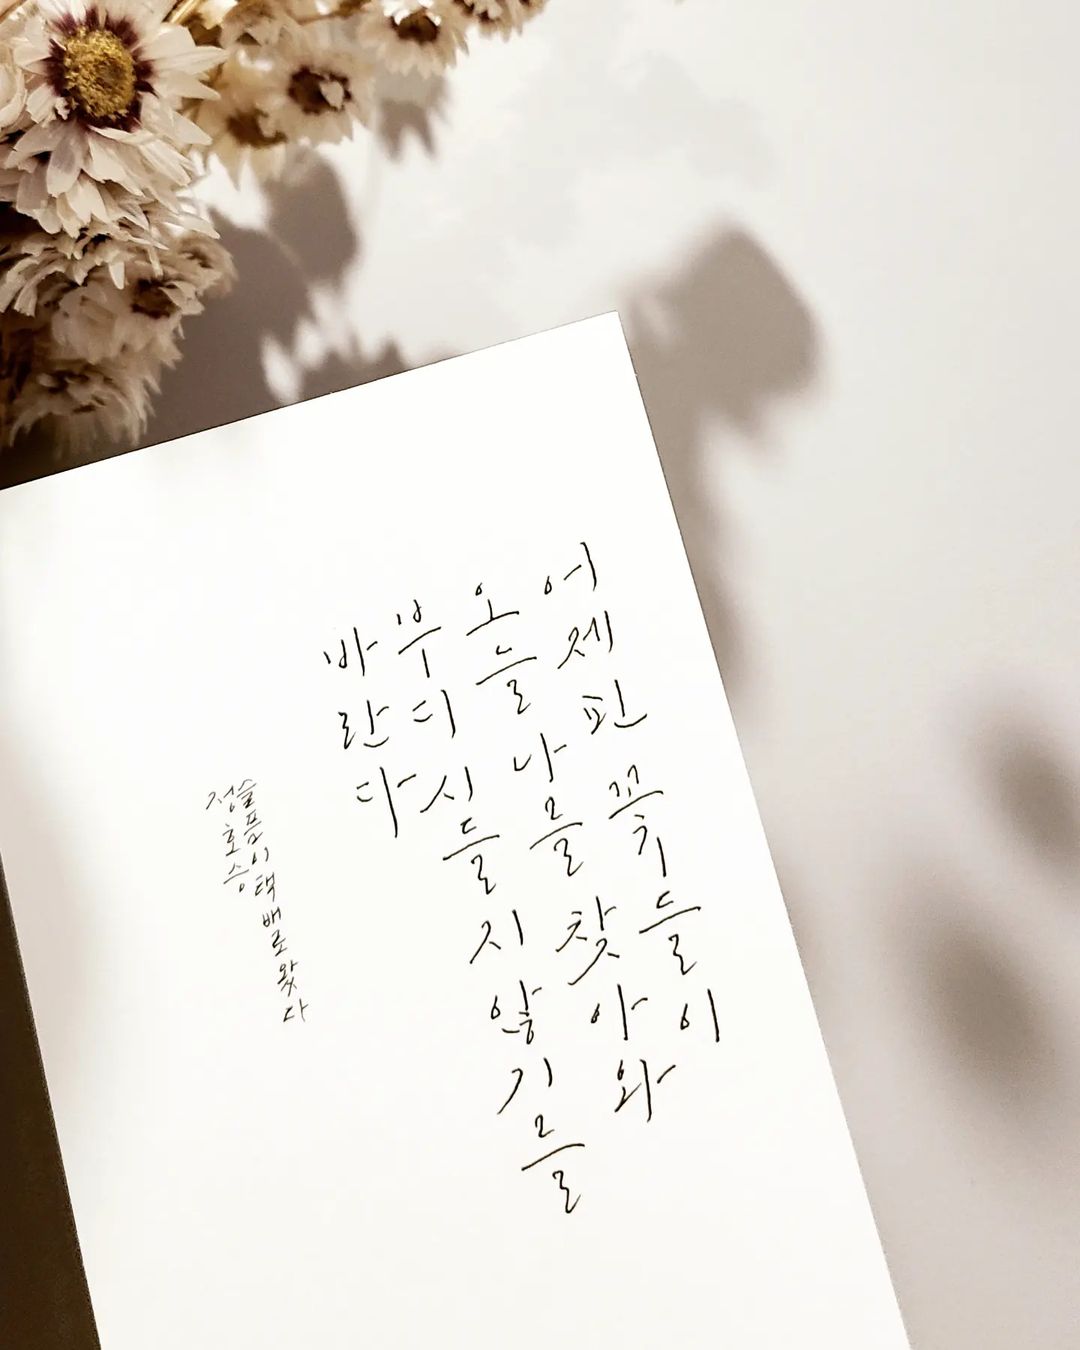 어제 핀 꽃들이
오늘 나를 찾아와
부디 시들지 않기를
바란다
슬픔이 택배로 왔다
정호승